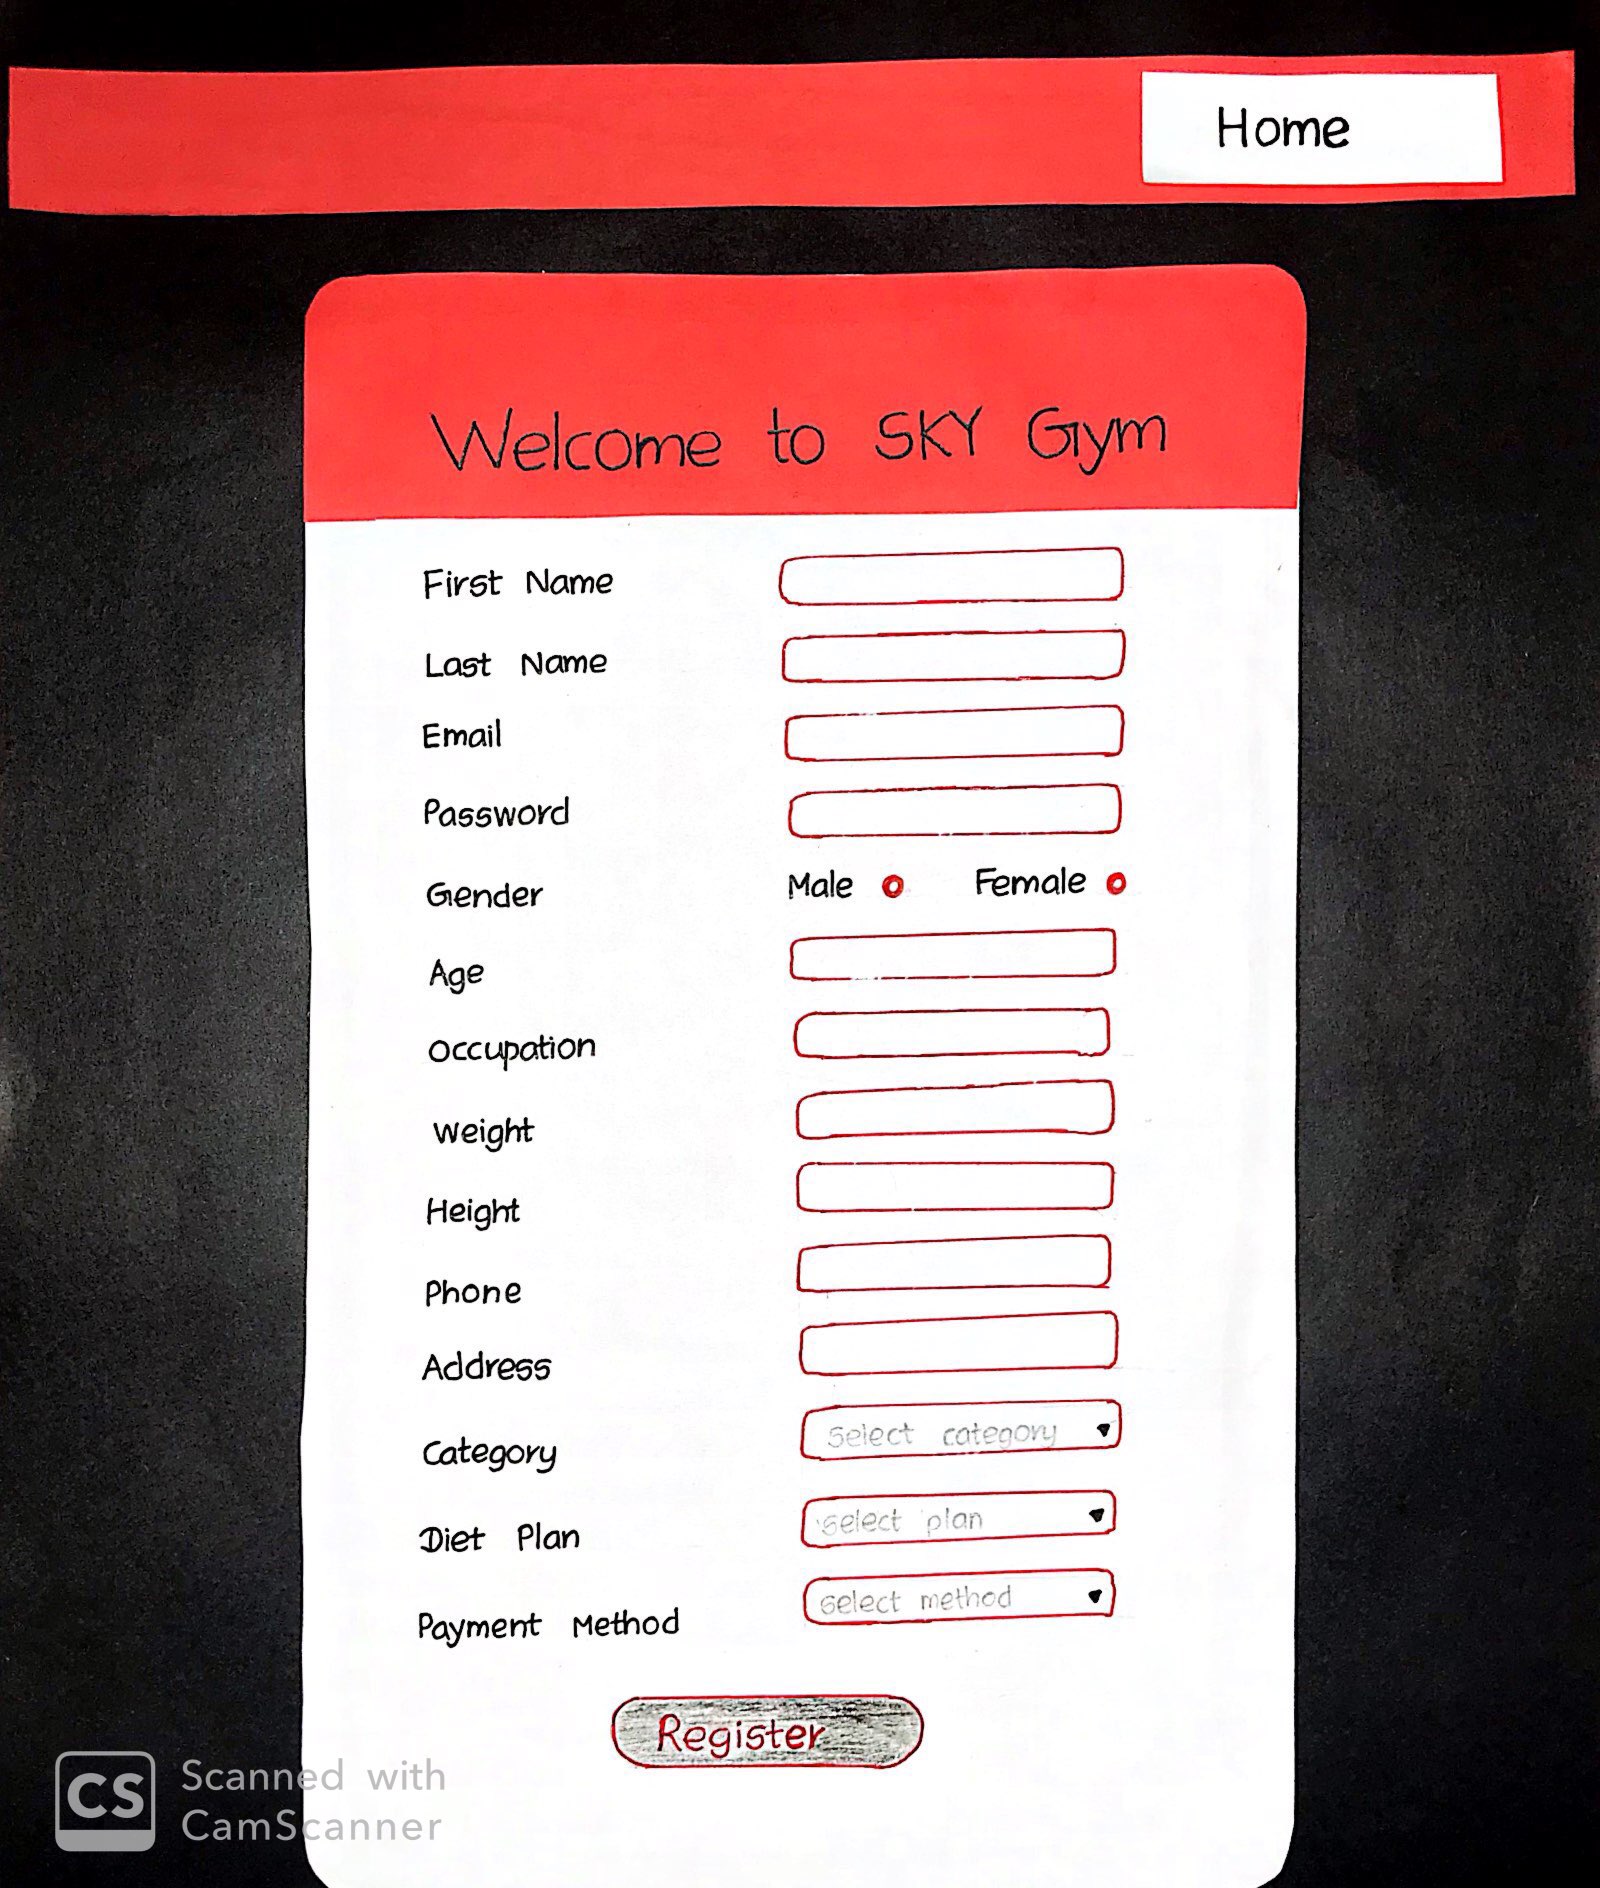 Home
Welcome to SKY Gym
First Name
Last Name
Email
Password
Gender Male Female
Age
Occupation
Weight
Height
Phone
Address
Category Select category
Diet Plan Select plan
Payment Method Select method
Register
CS Scanned with
CamScanner